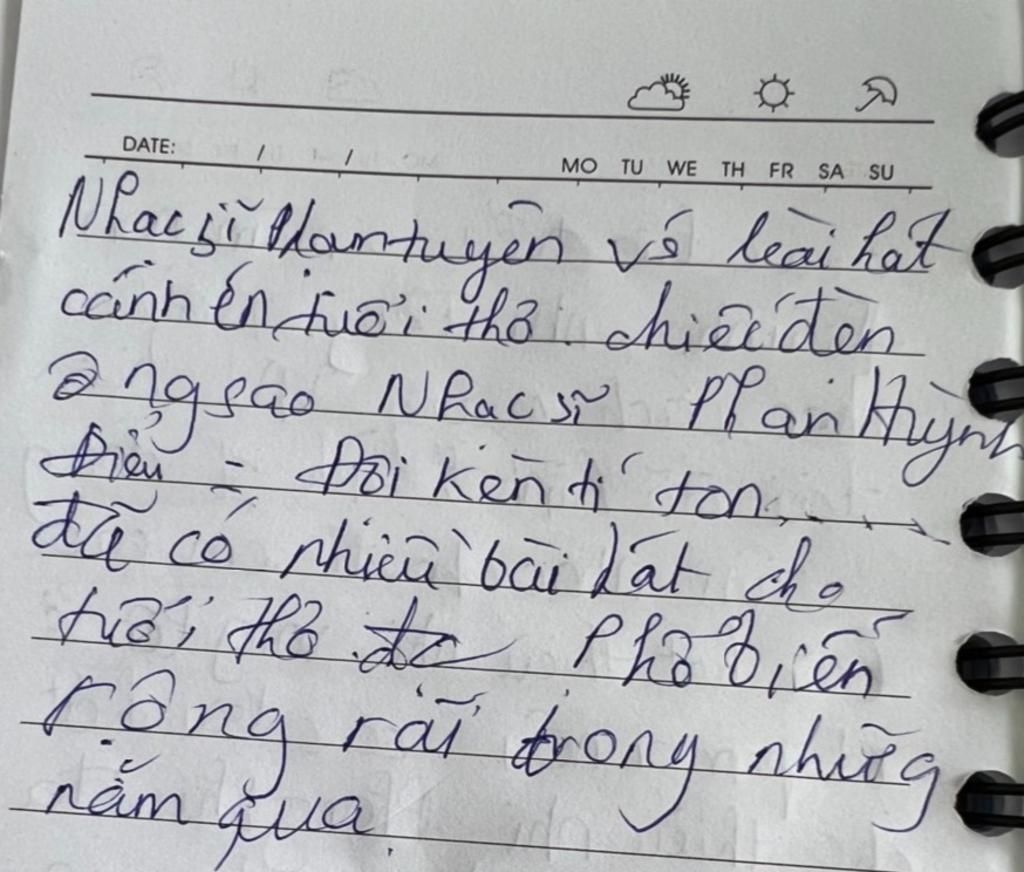 DATE: / /
MO TU WE TH FR SA SU
Nhạc sĩ Hamtuyên về bài hát
cánh én tuổi thơ. chiếc đèn
ông sao Nhạc sĩ Phan Huỳnh
Điểu - Đôi kèn tí ton....
đã có nhiều bài hát cho
tuổi thơ đc Phổ biến
rộng rãi trong những
năm qua.